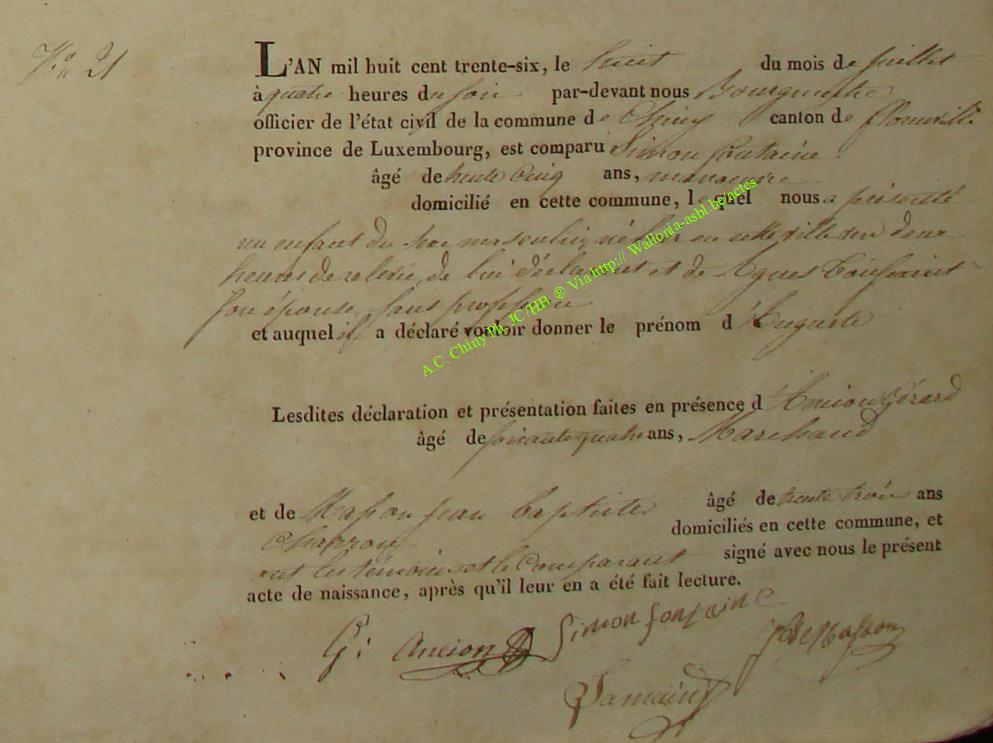 N.° 21
L'AN mil huit cent trente-six, le huit du mois de juillet
à quatre heures du soir par-devant nous Bourgmestre
officier de l'état civil de la commune de Chiny canton de florenville
province de Luxembourg, est comparu Simon fontaine
âgé de trente cinq ans, manoeuvre
domicilié en cette commune, lequel nous a présenté
un enfant du sexe masculin, né hier en cette ville sur deux
heures de relevée, de lui déclarant et de Agnes Toussaint
son épouse, sans profession
et auquel il a déclaré vouloir donner le prénom d'Auguste
Lesdites déclaration et présentation faites en présence d'Ancion Gérard
âgé de soixante quatre ans, Marchand
et de Masson jean baptiste âgé de trente trois ans
Charron domiciliés en cette commune, et
ont les témoins et le Comparant signé avec nous le présent
acte de naissance, après qu'il leur en a été fait lecture.
G: Ancion Simon fontaine Masson
A.C. Chiny Ph. JC /HB ® Via http:// Wallonia-asbl.be/actes